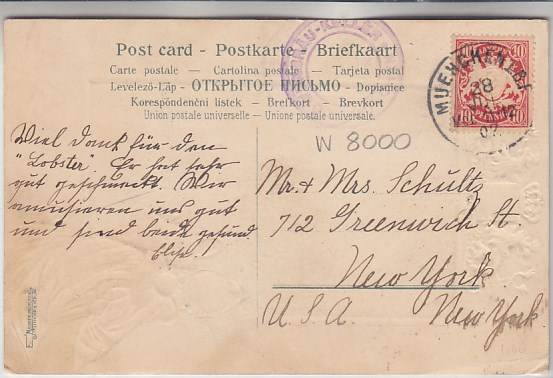 Post card - Postkarte - Briefkaart
Carte postale — Cartolina postale — Tarjeta postal
Levelező-Láp - ОТКРЫТОЕ ПИСЬМО - Dopisnice
Korespóndenční lístek — Brefkort — Brevkort
Union postale universelle — Unione postale universale.
MUENCHEN
28
07
10 10
PFENNIG
W 8000
Viel Dank für den
"Lobster". Er hat sehr
gut geschmeckt. Wir
amüsieren uns gut
und sind beide gesund.
Elise
Mr. & Mrs. Schultz
712 Greenwich St.
New York
U.S.A. New York